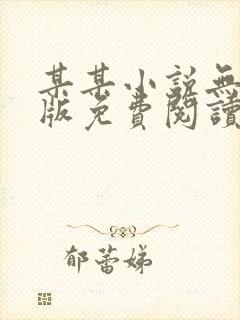 某某小説無
版免費閱讀
郁蕾娣